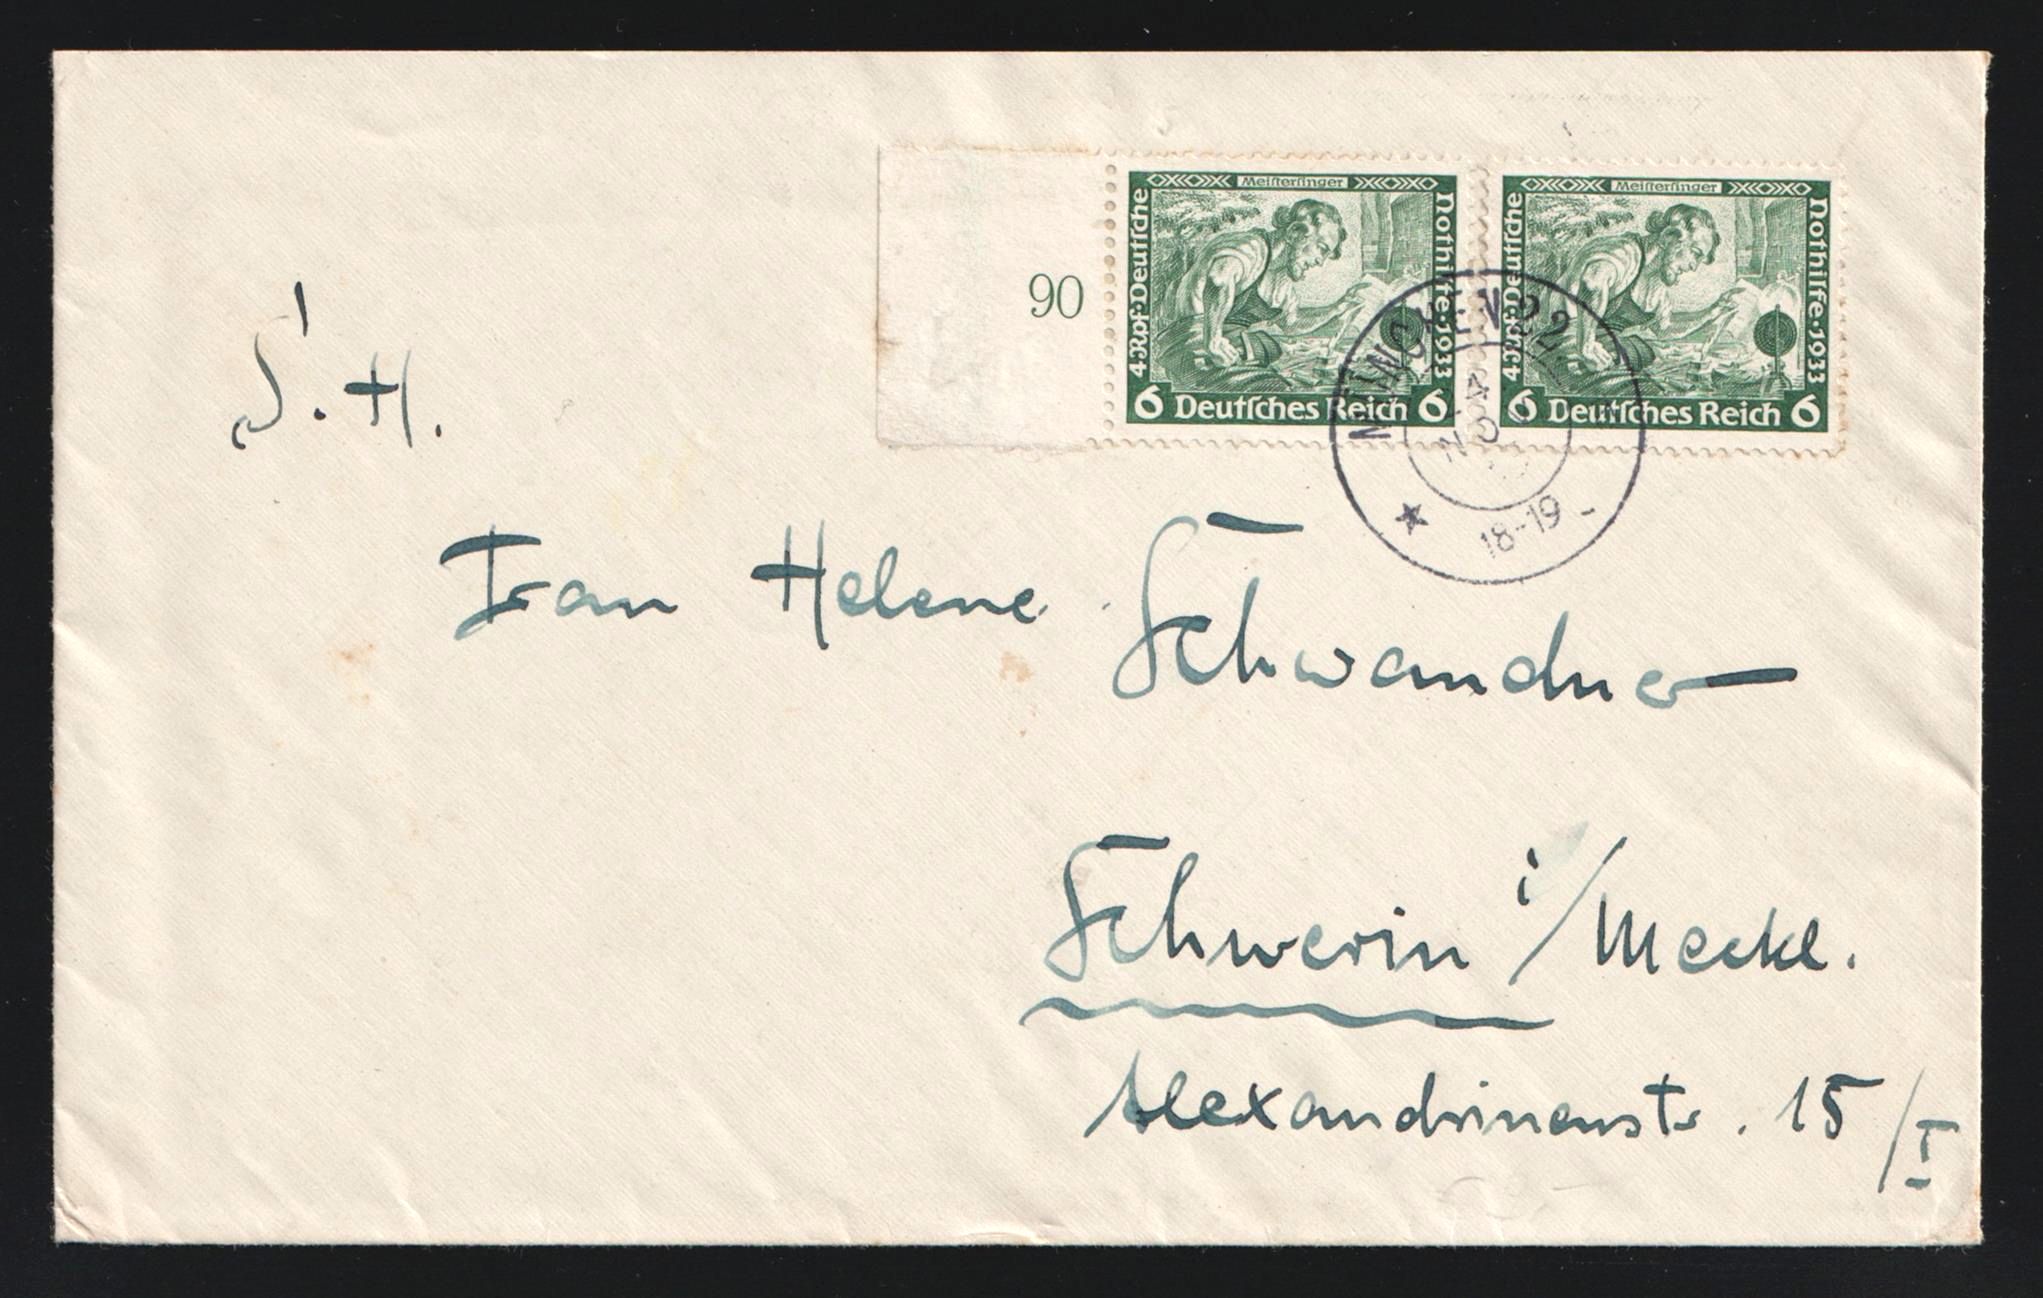 90
Meistersinger
4 Rpf·Deutsche
Nothilfe·1933
6 Deutsches Reich 6
Meistersinger
4 Rpf·Deutsche
Nothilfe·1933
6 Deutsches Reich 6
MÜNCHEN 22
NOV
18-19
S. H.
Frau Helene Schwandner
Schwerin i/Meckl.
Alexandrinenstr. 15/I